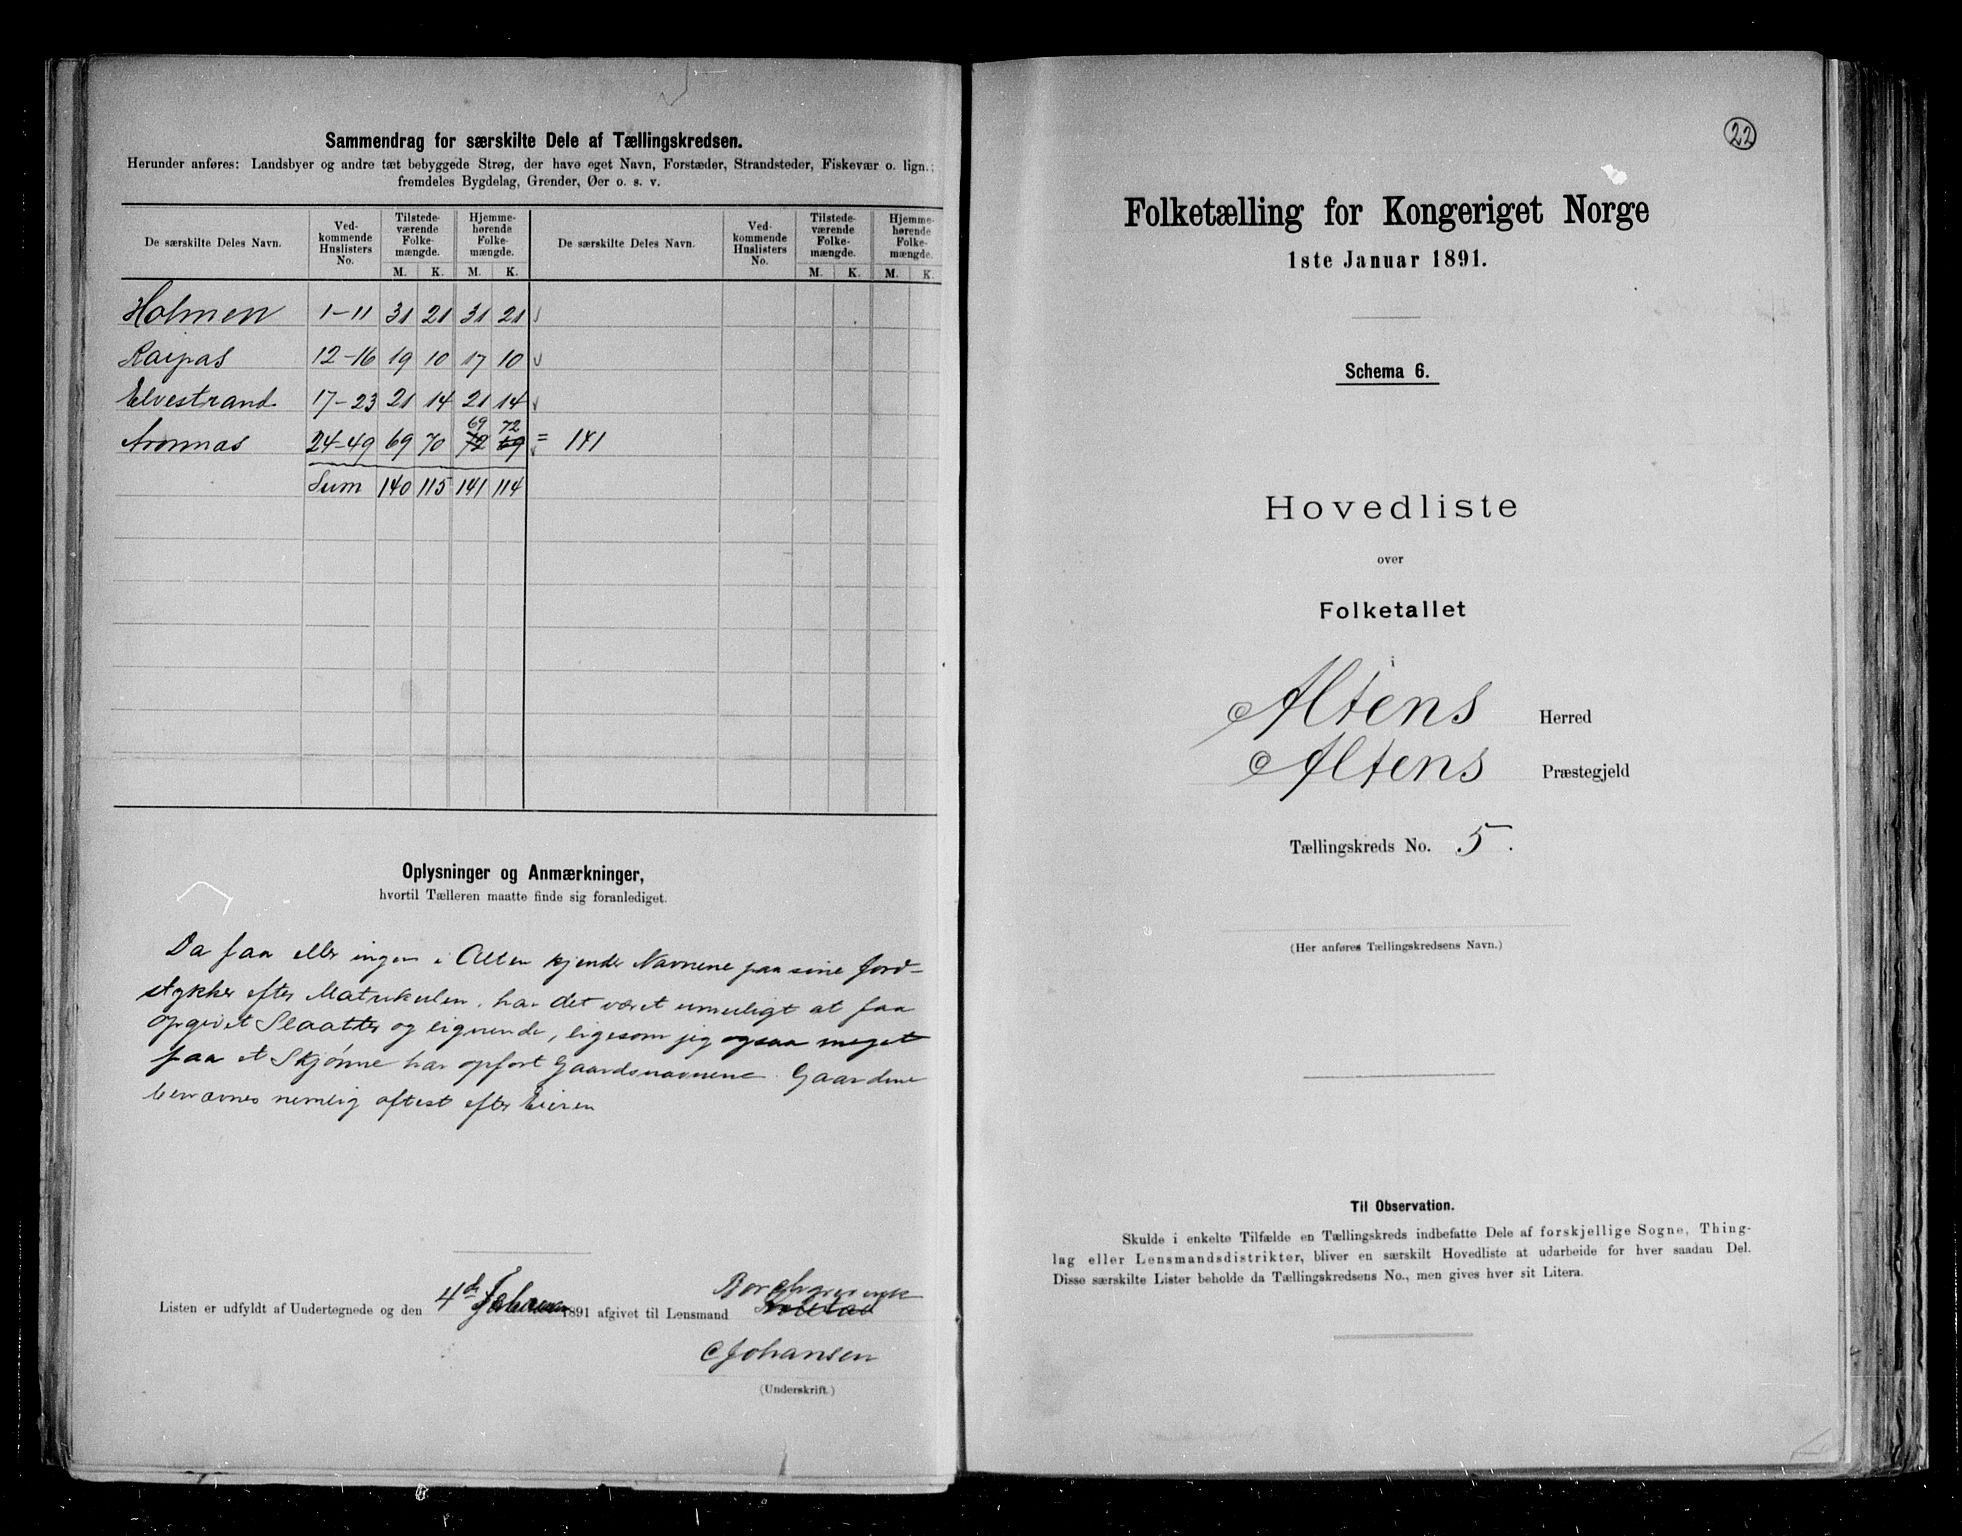 Sammendrag for særskilte Dele af Tællingskredsen.
Herunder anføres: Landsbyer og andre tæt bebyggede Strøg, der have eget Navn, Forstæder, Strandsteder, Fiskevær o. lign.;
fremdeles Bygdelag, Grender, Øer o. s. v.
De særskilte Deles Navn. Vedkommende Huslisters No. Tilstedeværende Folkemængde. Hjemmehørende Folkemængde. De særskilte Deles Navn. Vedkommende Huslisters No. Tilstedeværende Folkemængde. Hjemmehørende Folkemængde.
M. K. M. K. M. K. M. K.
Holmen 1-11 31 21 31 21
Raipas 12-16 19 10 17 10
Elvestrand 17-23 21 14 21 14
69 72
Aronnas 24-49 69 70 72 69 = 141
Sum 140 115 141 114
Oplysninger og Anmærkninger,
hvortil Tælleren maatte finde sig foranlediget.
Da faa eller ingen i Alten kjender Navnene paa sine Jord-
stykker efter Matrikulen, har det været umuligt at faa
opgivet Slaatter og lignende, ligesom jeg ogsaa meget
paa et Skjønne har opført Gaardsnavnene. Gaardene
benævnes nemlig oftest efter Eieren
Listen er udfyldt af Undertegnede og den 4de Februar 1891 afgivet til Lensmand
Johansen
(Underskrift.)
22
Folketælling for Kongeriget Norge
1ste Januar 1891.
Schema 6.
Hovedliste
over
Folketallet
i
Altens Herred
Altens Præstegjeld
Tællingskreds No. 5.
(Her anføres Tællingskredsens Navn.)
Til Observation.
Skulde i enkelte Tilfælde en Tællingskreds indbefatte Dele af forskjellige Sogne, Thing-
lag eller Lensmandsdistrikter, bliver en særskilt Hovedliste at udarbeide for hver saadan Del.
Disse særskilte Lister beholde da Tællingskredsens No., men gives hver sit Litera.